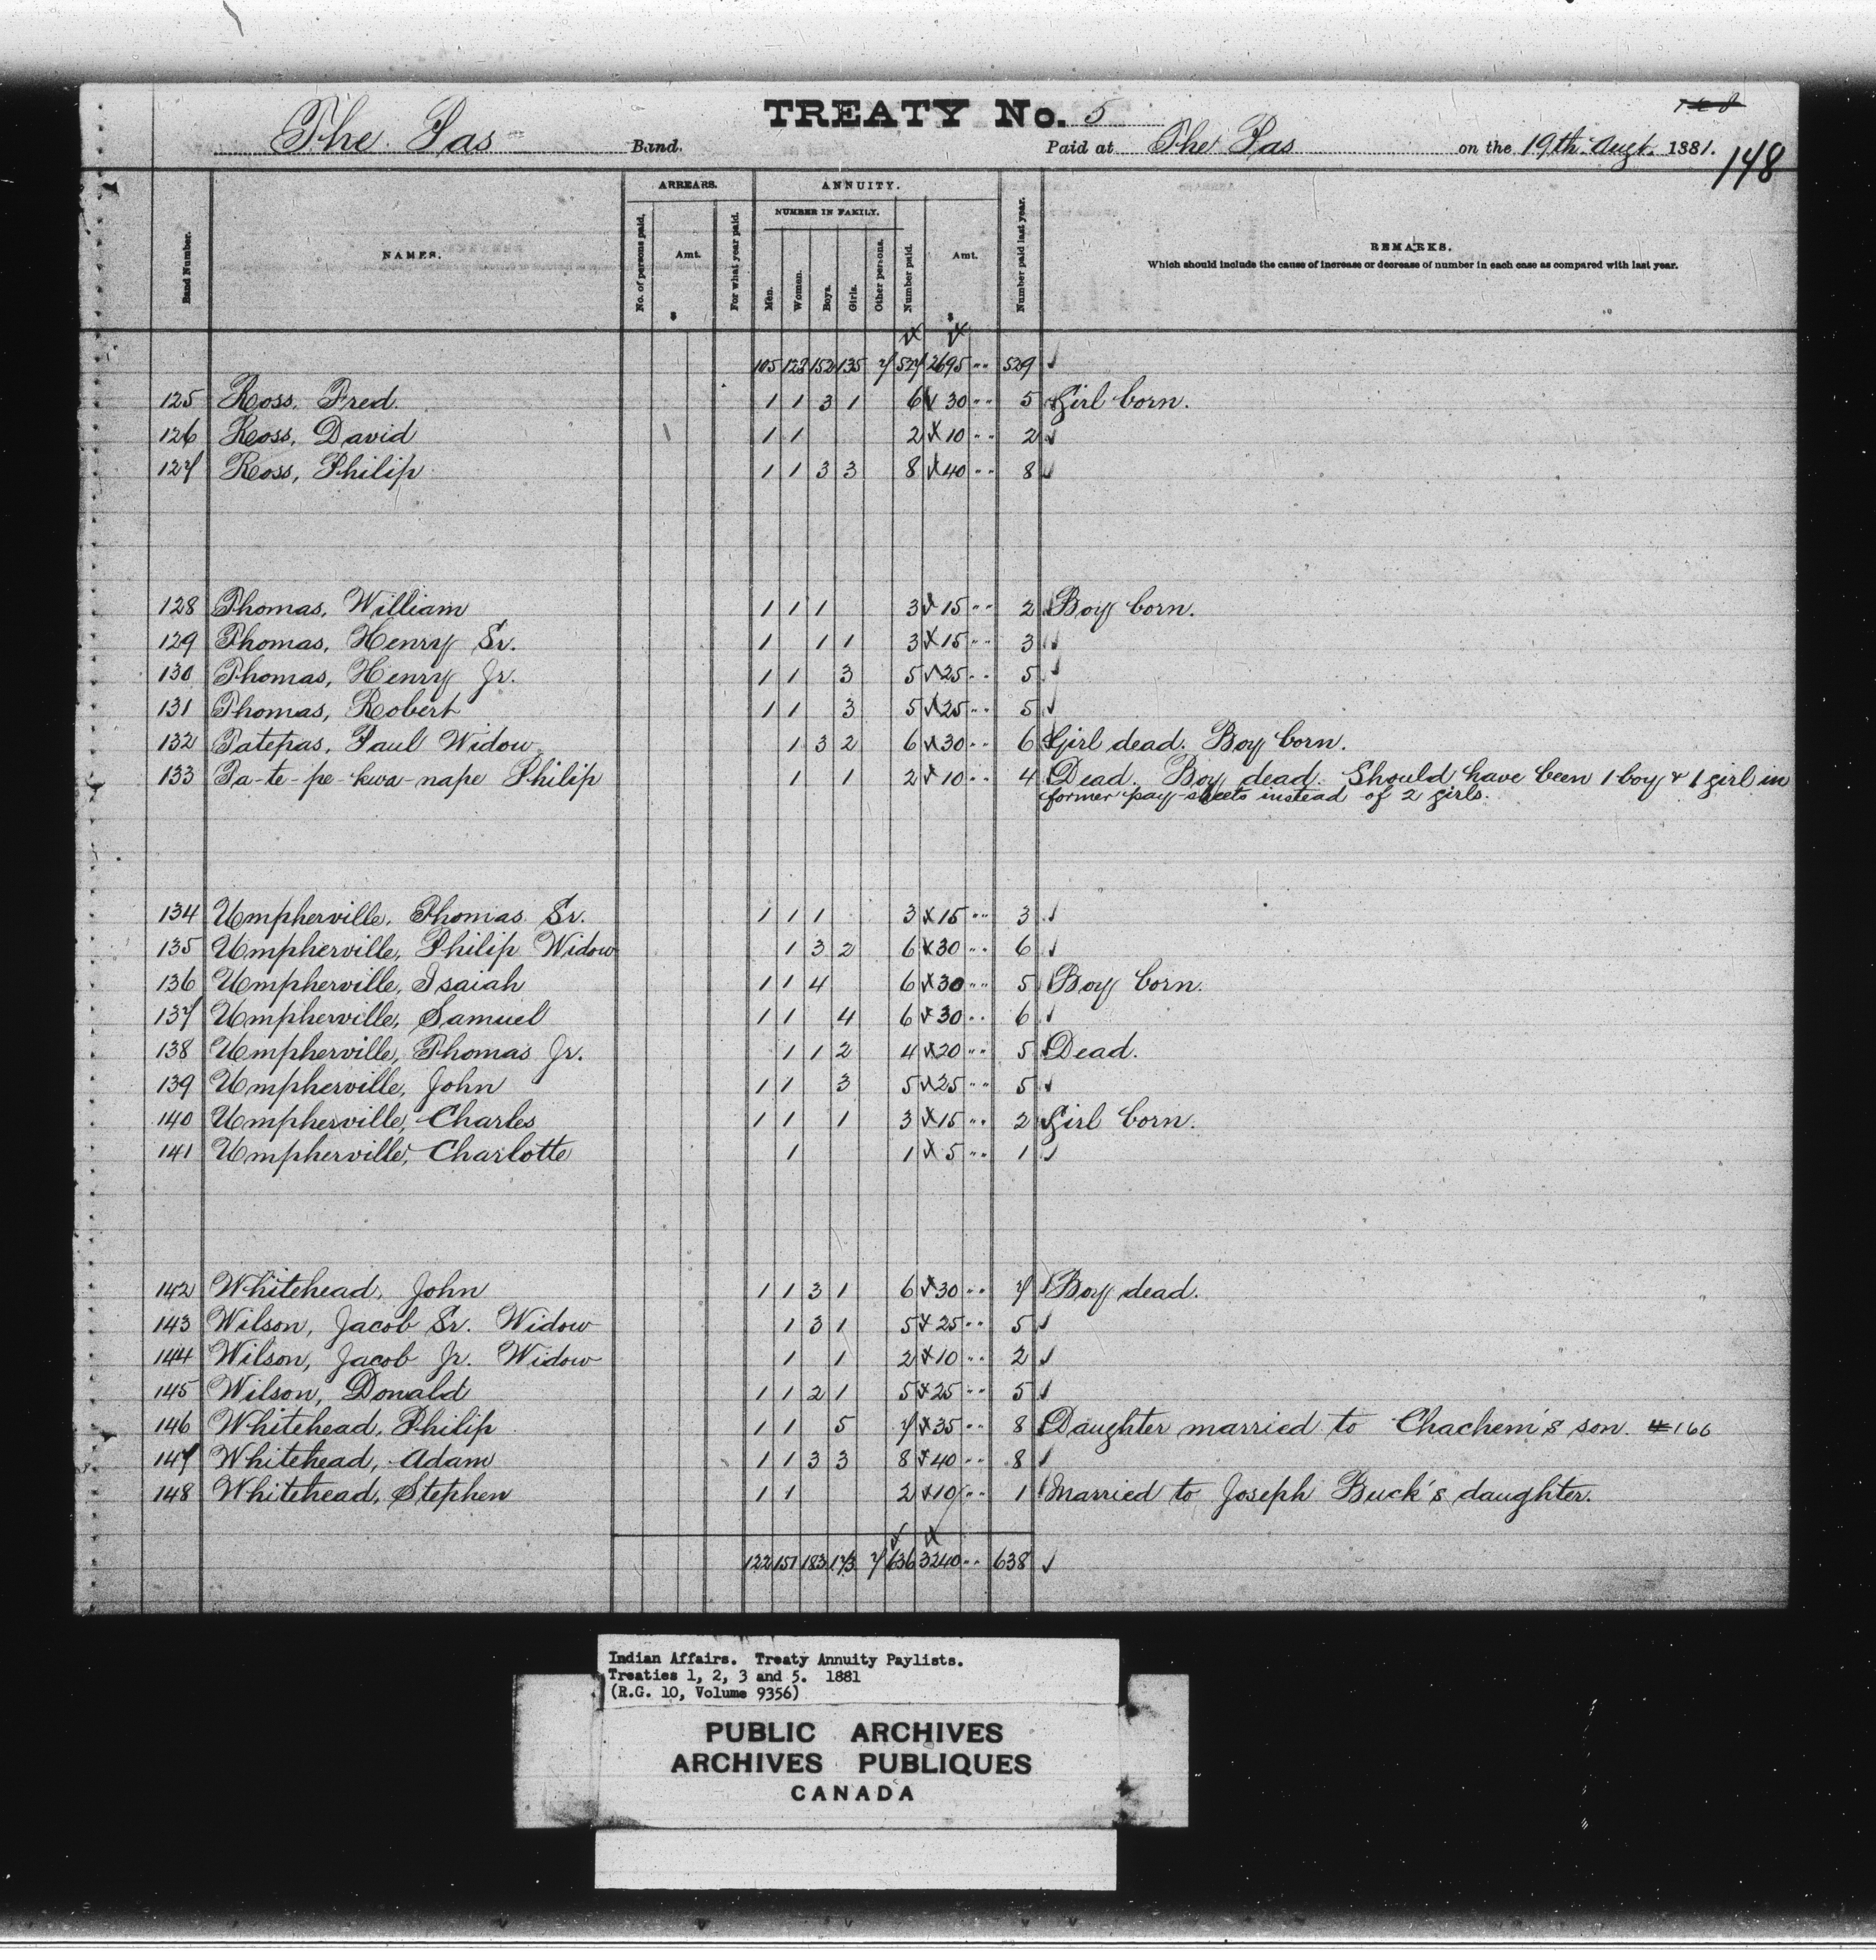 TREATY No. 5
The Pas Band. Paid at The Pas on the 19th Augt. 1881.
148
ARREARS. ANNUITY.
NUMBER IN FAMILY.
Band Number. NAMES. No. of persons paid. Amt. For what year paid. Men. Women. Boys. Girls. Other persons. Number paid. Amt. Number paid last year. REMARKS.
Which should include the cause of increase or decrease of number in each case as compared with last year.
$ $
105 128 152 135 7 527 2695 " " 529 ✓
125 Ross, Fred. 1 1 3 1 6 30 " " 5 Girl born.
126 Ross, David 1 1 2 10 " " 2 ✓
127 Ross, Philip 1 1 3 3 8 40 " " 8 ✓
128 Thomas, William 1 1 1 3 15 " " 2 Boy born.
129 Thomas, Henry Sr. 1 1 1 3 15 " " 3 ✓
130 Thomas, Henry Jr. 1 1 3 5 25 " " 5 ✓
131 Thomas, Robert 1 1 3 5 25 " " 5 ✓
132 Tatepas, Paul Widow 1 3 2 6 30 " " 6 Girl dead. Boy born.
133 Ta-te-pe-kwa-nape Philip 1 1 2 10 " " 4 Dead. Boy dead. Should have been 1 boy & 1 girl in
former pay-sheets instead of 2 girls.
134 Umpherville, Thomas Sr. 1 1 1 3 15 " " 3 ✓
135 Umpherville, Philip Widow 1 3 2 6 30 " " 6 ✓
136 Umpherville, Isaiah 1 1 4 6 30 " " 5 Boy born.
137 Umpherville, Samuel 1 1 4 6 30 " " 6 ✓
138 Umpherville, Thomas Jr. 1 1 2 4 20 " " 5 Dead.
139 Umpherville, John 1 1 3 5 25 " " 5 ✓
140 Umpherville, Charles 1 1 1 3 15 " " 2 Girl born.
141 Umpherville, Charlotte 1 1 5 " " 1 ✓
142 Whitehead, John 1 1 3 1 6 30 " " 7 Boy dead.
143 Wilson, Jacob Sr. Widow 1 3 1 5 25 " " 5 ✓
144 Wilson, Jacob Jr. Widow 1 1 2 10 " " 2 ✓
145 Wilson, Donald 1 1 2 1 5 25 " " 5 ✓
146 Whitehead, Philip 1 1 5 7 35 " " 8 Daughter married to Chachem's son. # 166
147 Whitehead, Adam 1 1 3 3 8 40 " " 8 ✓
148 Whitehead, Stephen 1 1 2 10 " " 1 Married to Joseph Buck's daughter.
122 151 183 173 7 636 3240 " " 638 ✓
Indian Affairs. Treaty Annuity Paylists.
Treaties 1, 2, 3 and 5. 1881
(R.G. 10, Volume 9356)
PUBLIC ARCHIVES
ARCHIVES PUBLIQUES
CANADA